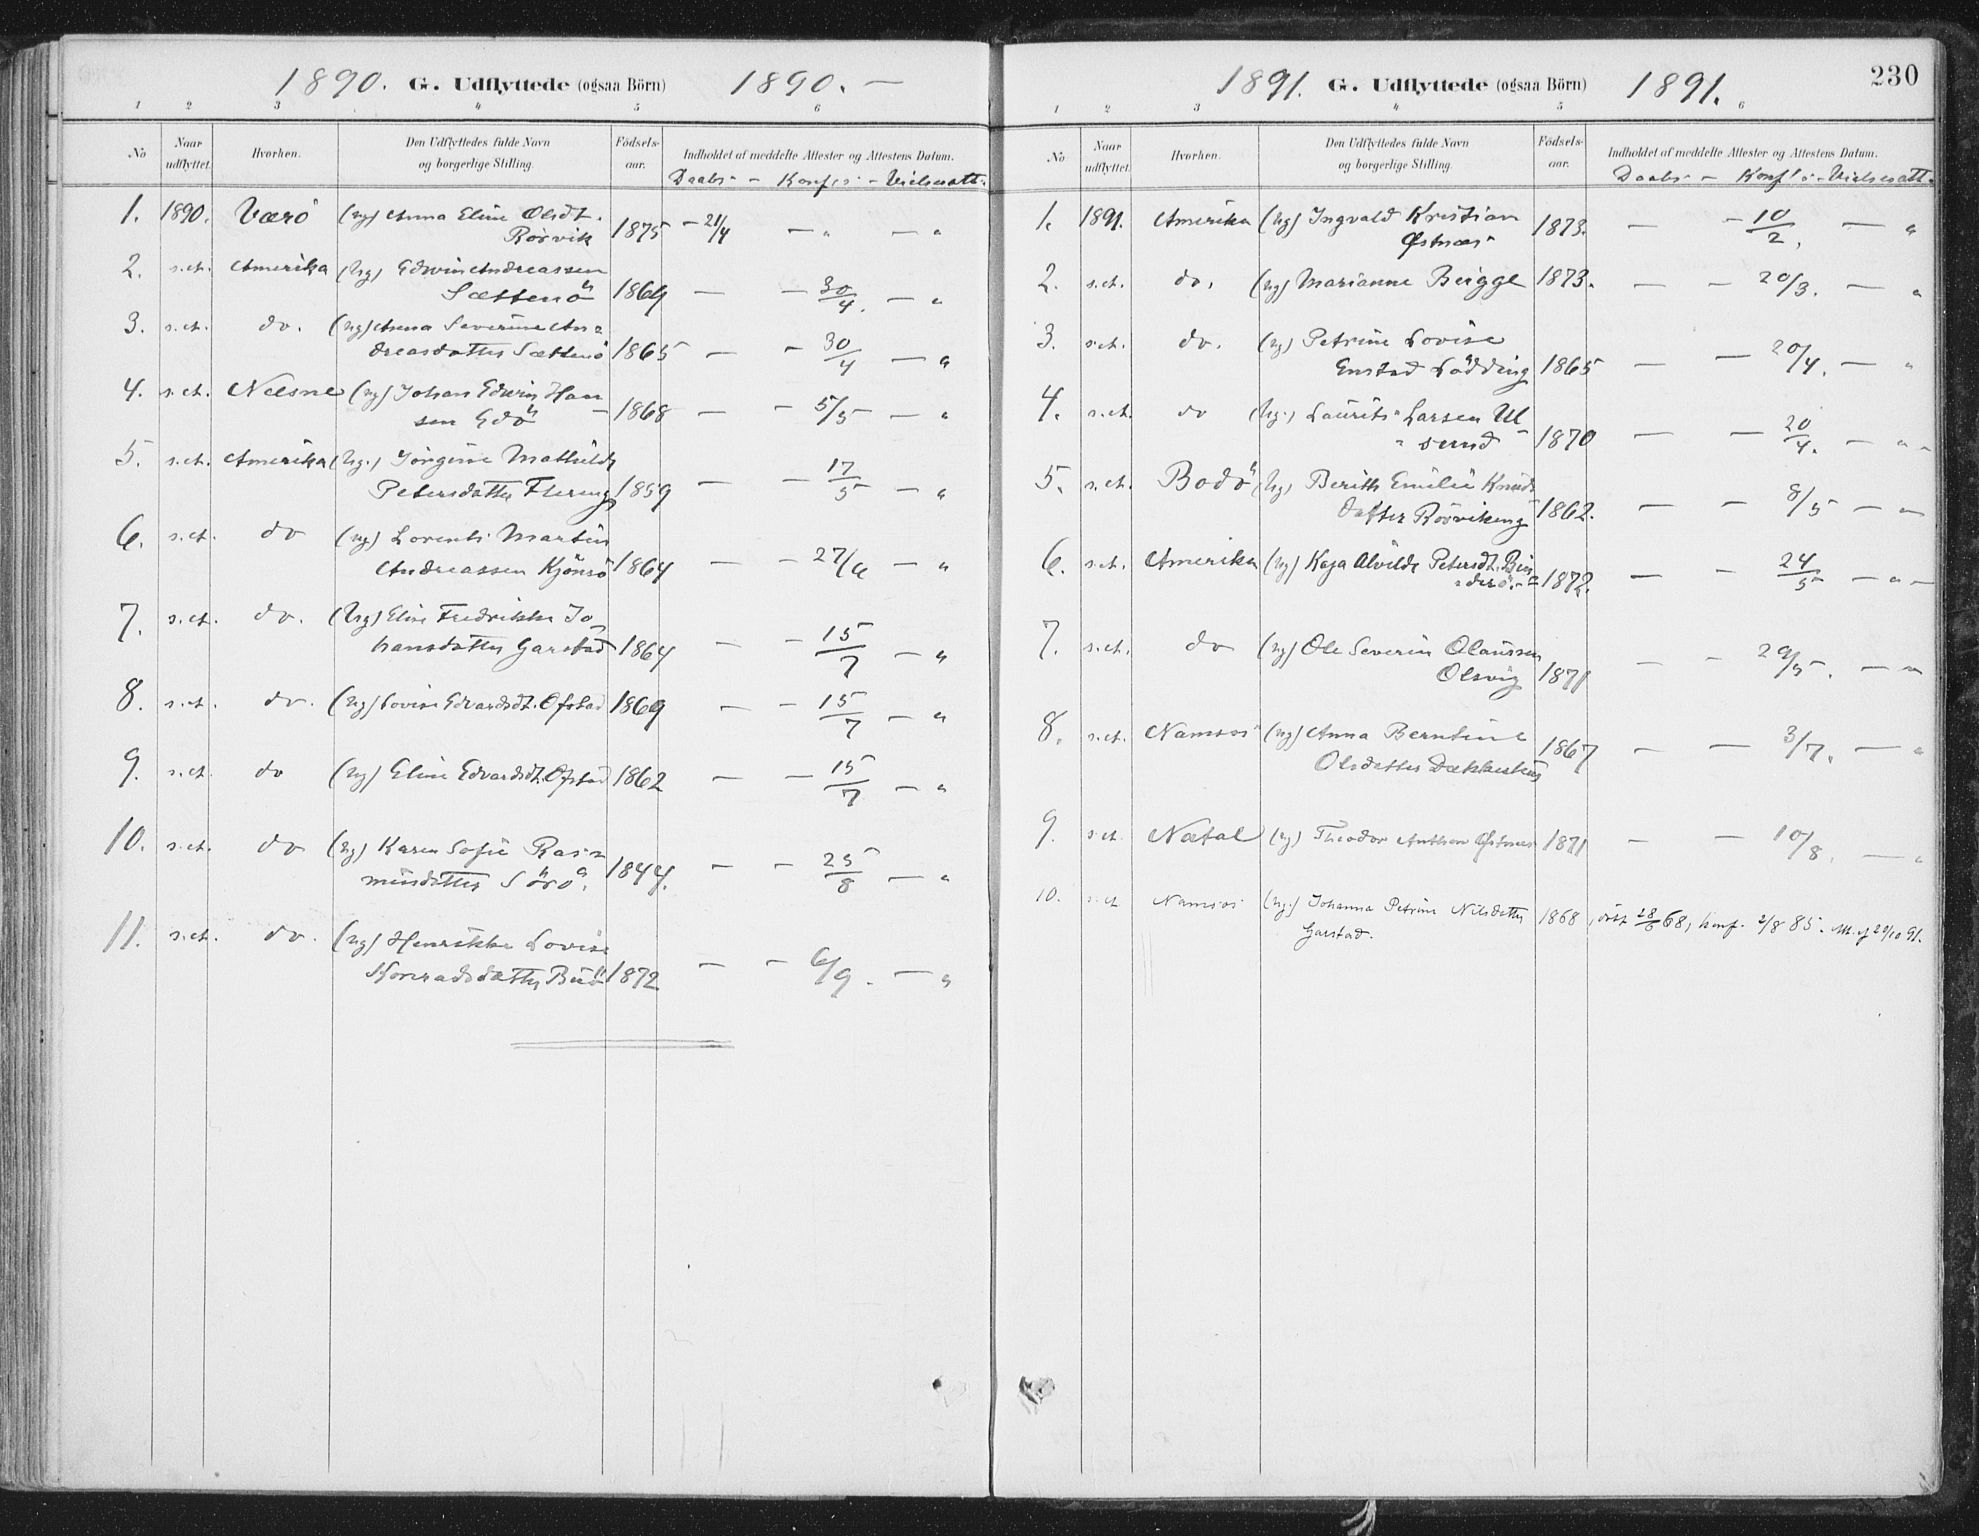 1890. G. Udflyttede (ogsaa Börn) 1890. —
1 2 3 4 5 6
No Naar udflyttet. Hvorhen. Den Udflyttedes fulde Navn og borgerlige Stilling. Födselsaar. Indholdet af meddelte Attester og Attestens Datum.
Daabs - — Konf:s - — Vielsesatt.
1. 1890. Værö (ug) Anna Eline Olsdt.
Rörvik 1875 - 21/4 — " — "
2. s.A. Amerika (Ug) Edwin Andreassen
Sættenö 1869 — — 30/4. — "
3. s.A. do. (ug) Anna Severine An=
dreasdatter Sættenö 1865 — — 30/4 — "
4. s.A. Nesne (ug) Johan Edwin Han
sen Edö 1868 — — 5/5 — "
5. s.A. Amerika (Ug.) Jörgine Mathilde
Petersdatter Flereng 1859 — — 17/5 — "
6. s.A. do (ug) Lorents Martin
Andreassen Kjönsö 1864 — — 27/6 — "
7. s.A. do. (Ug) Elise Fredrikke Jo
hansdatter Garstad 1864 — — 15/7 — "
8. s.A. do. (ug) Lovise Edvardsdt. Ofstad 1869 — — 15/7 — "
9. s.A. do (ug) Eline Edvardsdt. Ofstad 1862 — — 15/7 — "
10. s.A. do (ug) Karen Sofie Ras=
musdatter Sörö. 1844. — — 25/8 — "
11. s.A. do. (ug) Henrikke Lovise
Konradsdatter Buö 1872 — — 6/9. — "
1891. G. Udflyttede (ogsaa Börn) 1891. 230
1 2 3 4 5 6
No Naar udflyttet. Hvorhen. Den Udflyttedes fulde Navn og borgerlige Stilling. Födselsaar. Indholdet af meddelte Attester og Attestens Datum.
Daabs - — Konf!s - Vielsesatt.
1. 1891. Amerika (Ug) Ingvald Kristian
Østnæs 1873. — — 10/2. — "
2. s.A. do. (ug) Marianne Brigge 1873. — — 20/3. — "
3. s.A. do. (ug) Petrine Lovise
Enstad Lödding 1865 — — 20/4. — "
4. s.A. do (Ug.) Laurits Larsen Ul
sund 1870 — — 20/4. — "
5. s.A. Bodö (Ug) Berith Emilie Knuds
datter Rörvikeng 1862. — — 8/5 — "
6. s.A. Amerika (Ug) Kaja Alvilde Petersdt. Bin
derö. 1872. — — 24/5 — "
7. s.A. do (ug) Ole Severin Olaussen
Olsvig 1871 — — 29/5. — "
8. s.A. Namsos (ug) Anna Berntine
Olsdatter Dækkerhus 1867 — — 3/7. — "
9. s.A. Natal (ug) Theodor Anthon Østnæs 1871 — — 10/8. — "
10. s.A. Namsos (ug.) Johanna Petrine Nilsdatter 1868, döbt 28/6 68, konf. 2/8 85. Att. af 29/10 91.
Garstad.